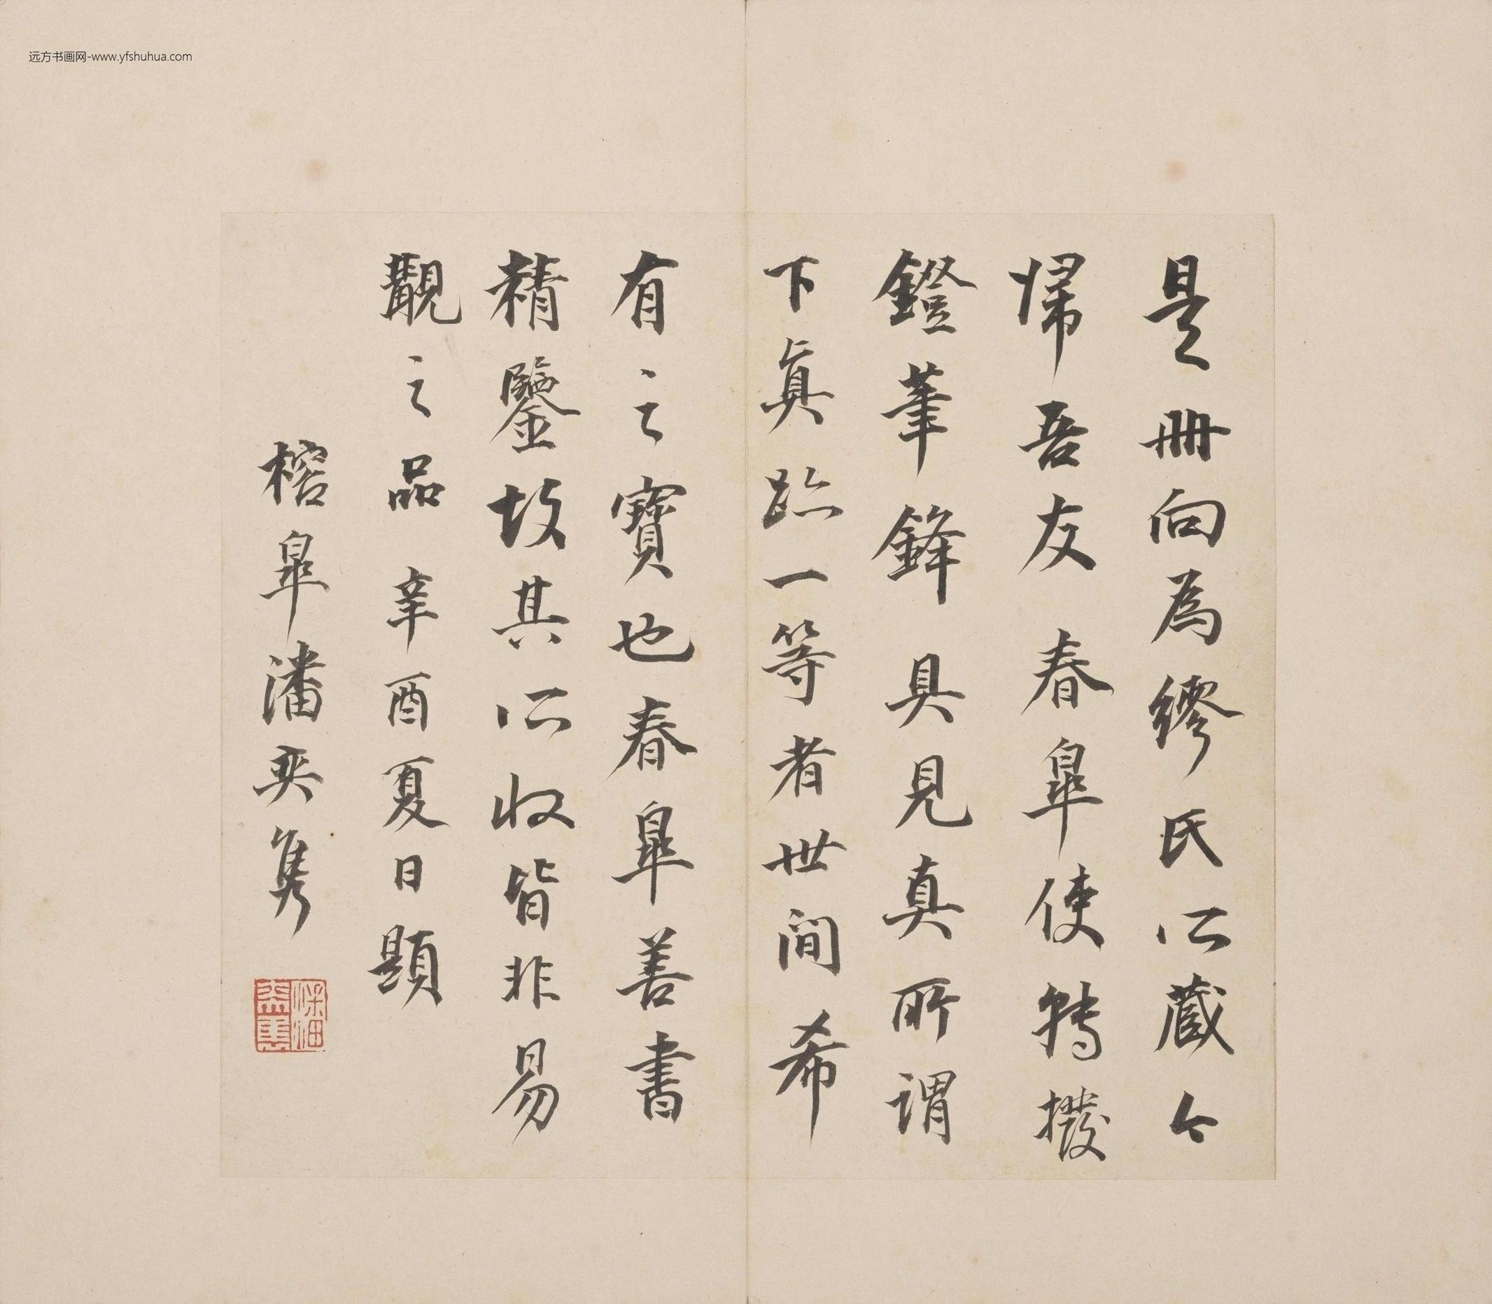 远方书画网-www.yfshuhua.com
是冊向為繆氏所藏今
歸吾友春皐使轉撥
鐙筆鋒具見真所謂
下真跡一等者世間希
有之寶也春皐善書
精鑒故其所收皆非易
覯之品 辛酉夏日題
榕皐潘奕雋